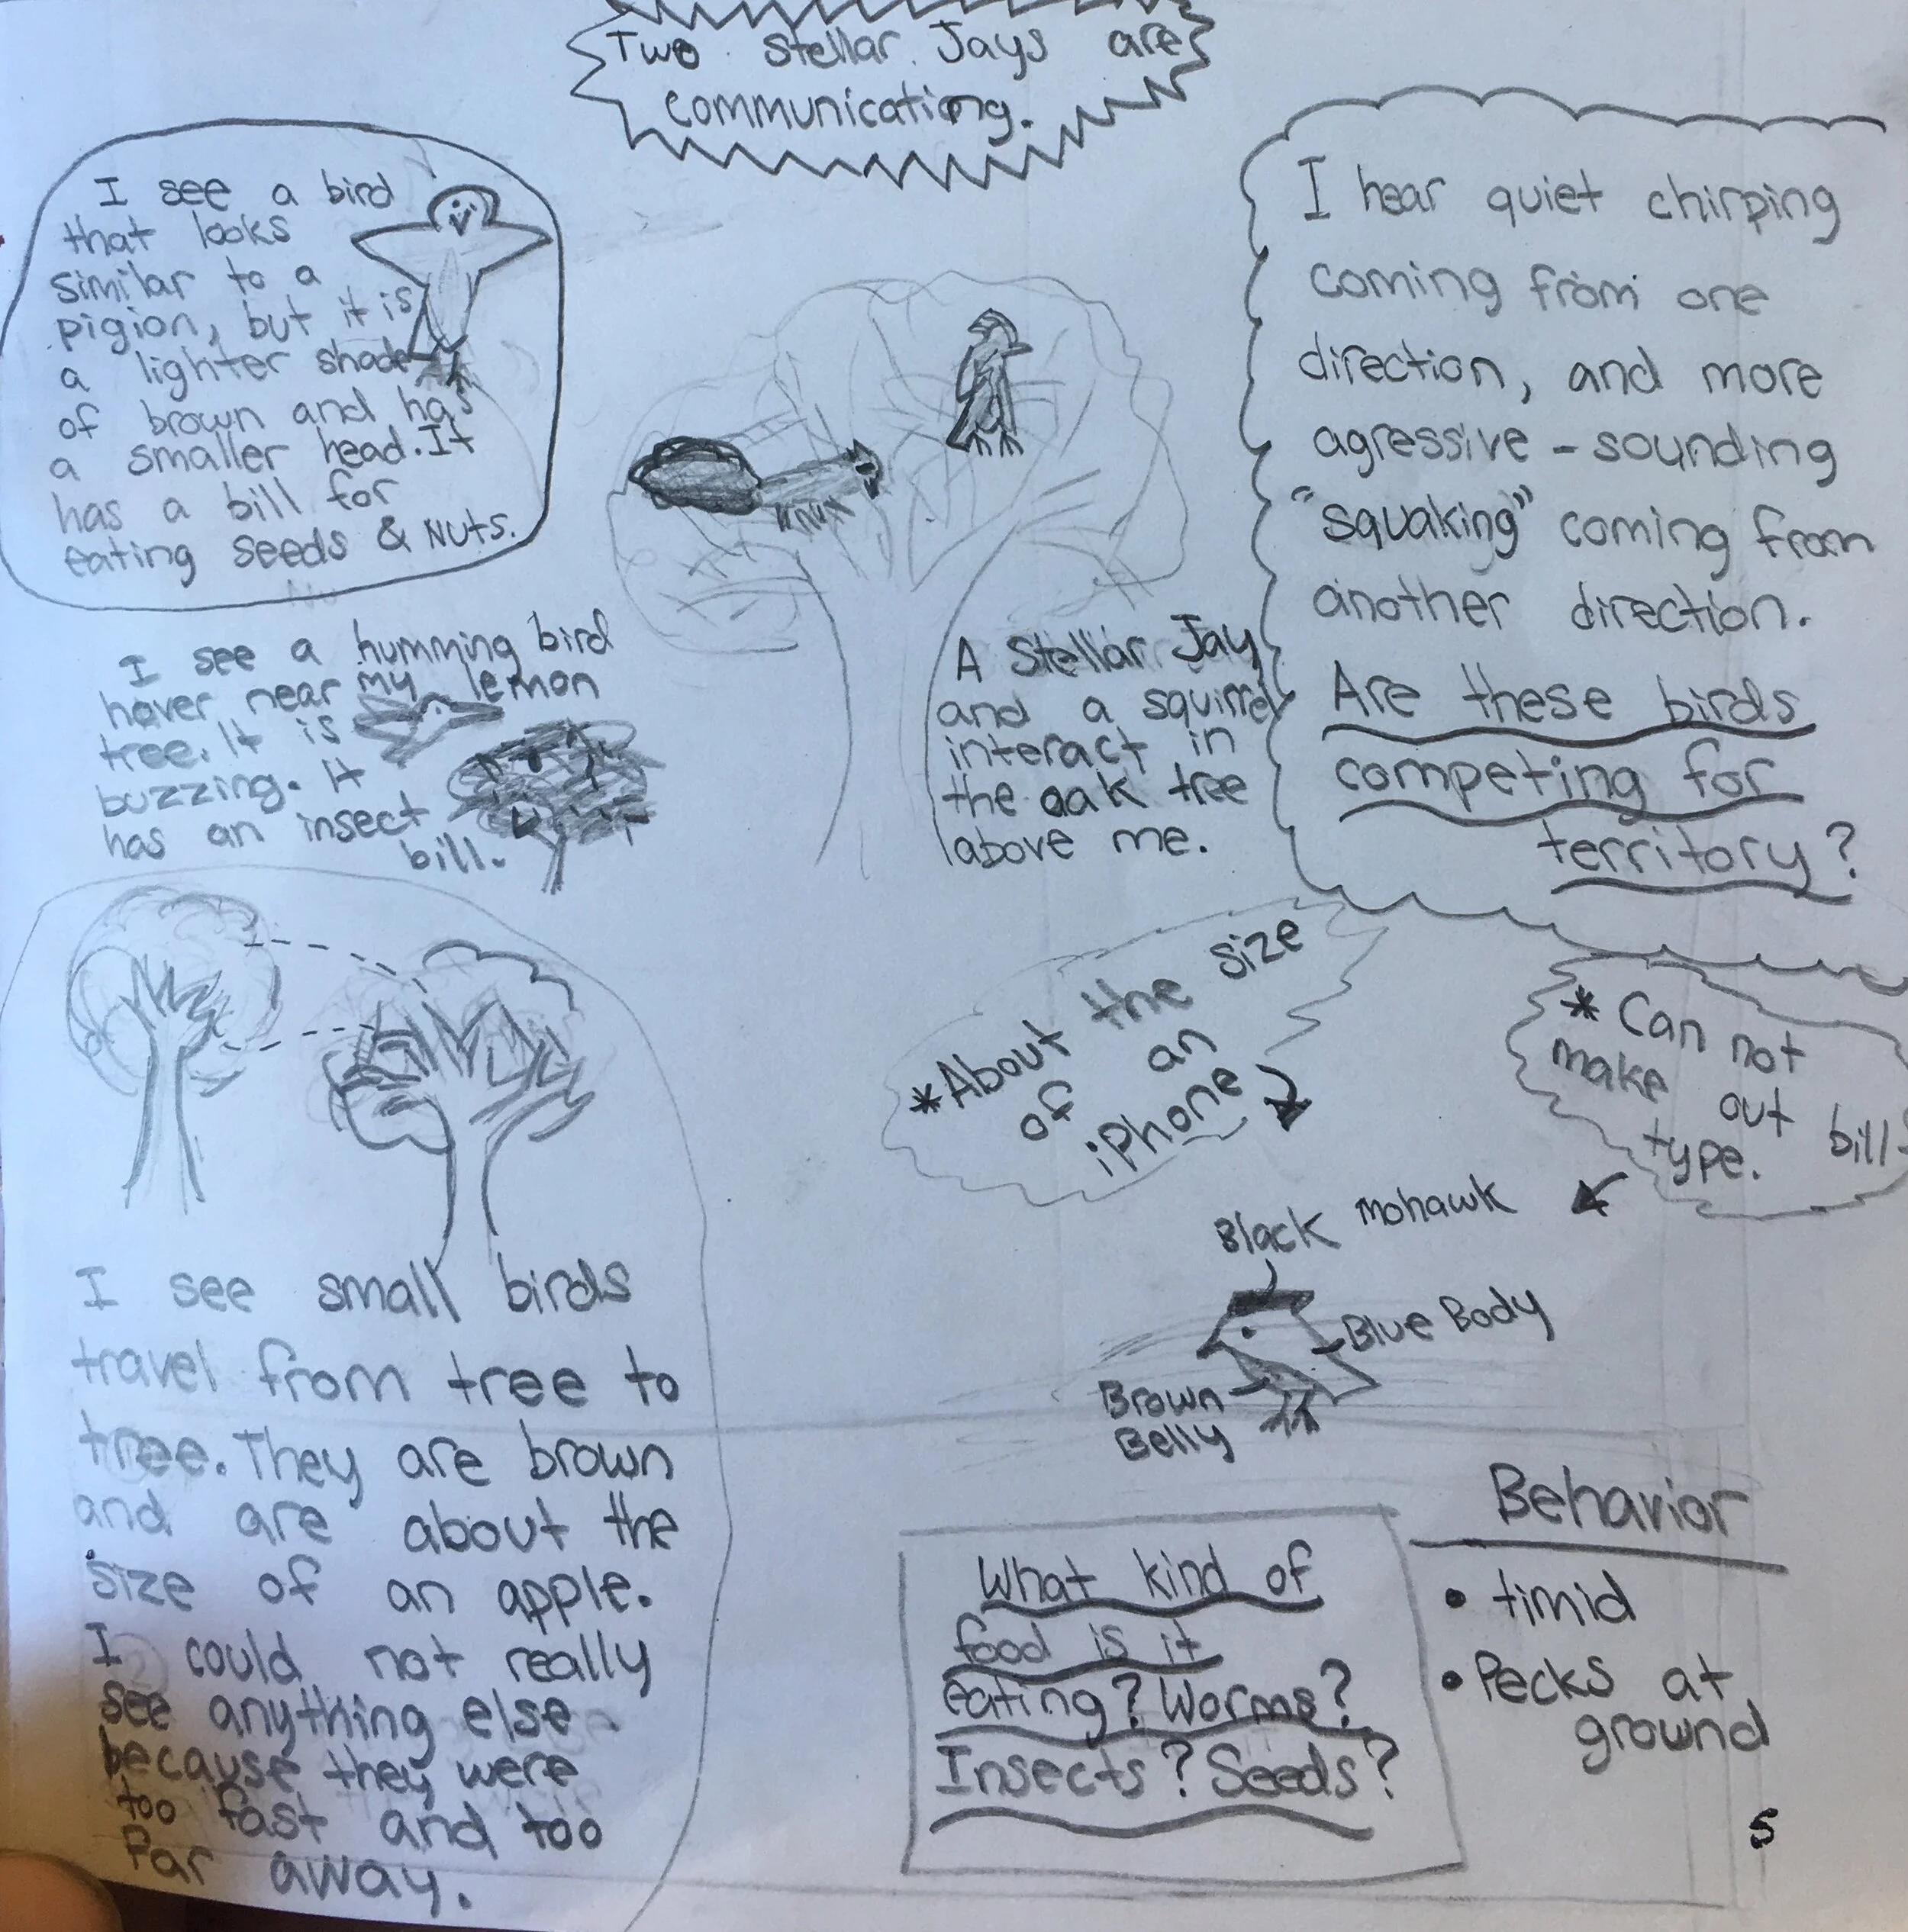 Two Stellar Jays are
communicating.
I see a bird
that looks
similar to a
pigion, but it is
a lighter shade
of brown and has
a smaller head. It
has a bill for
eating seeds & Nuts.
I hear quiet chirping
coming from one
direction, and more
agressive - sounding
"squaking" coming from
another direction.
Are these birds
competing for
territory?
I see a humming bird
hover near my lemon
tree. It is
buzzing. It
has an insect
bill.
A Stellar Jay
and a squirrel
interact in
the oak tree
above me.
*About the size
of an
iPhone
*Can not
make out bill
type.
Black mohawk
Blue Body
Brown
Belly
I see small birds
travel from tree to
tree. They are brown
and are about the
size of an apple.
I could not really
see anything else
because they were
too fast and too
far away.
What kind of
food is it
eating? Worms?
Insects? Seeds?
Behavior
• timid
• Pecks at
ground
5